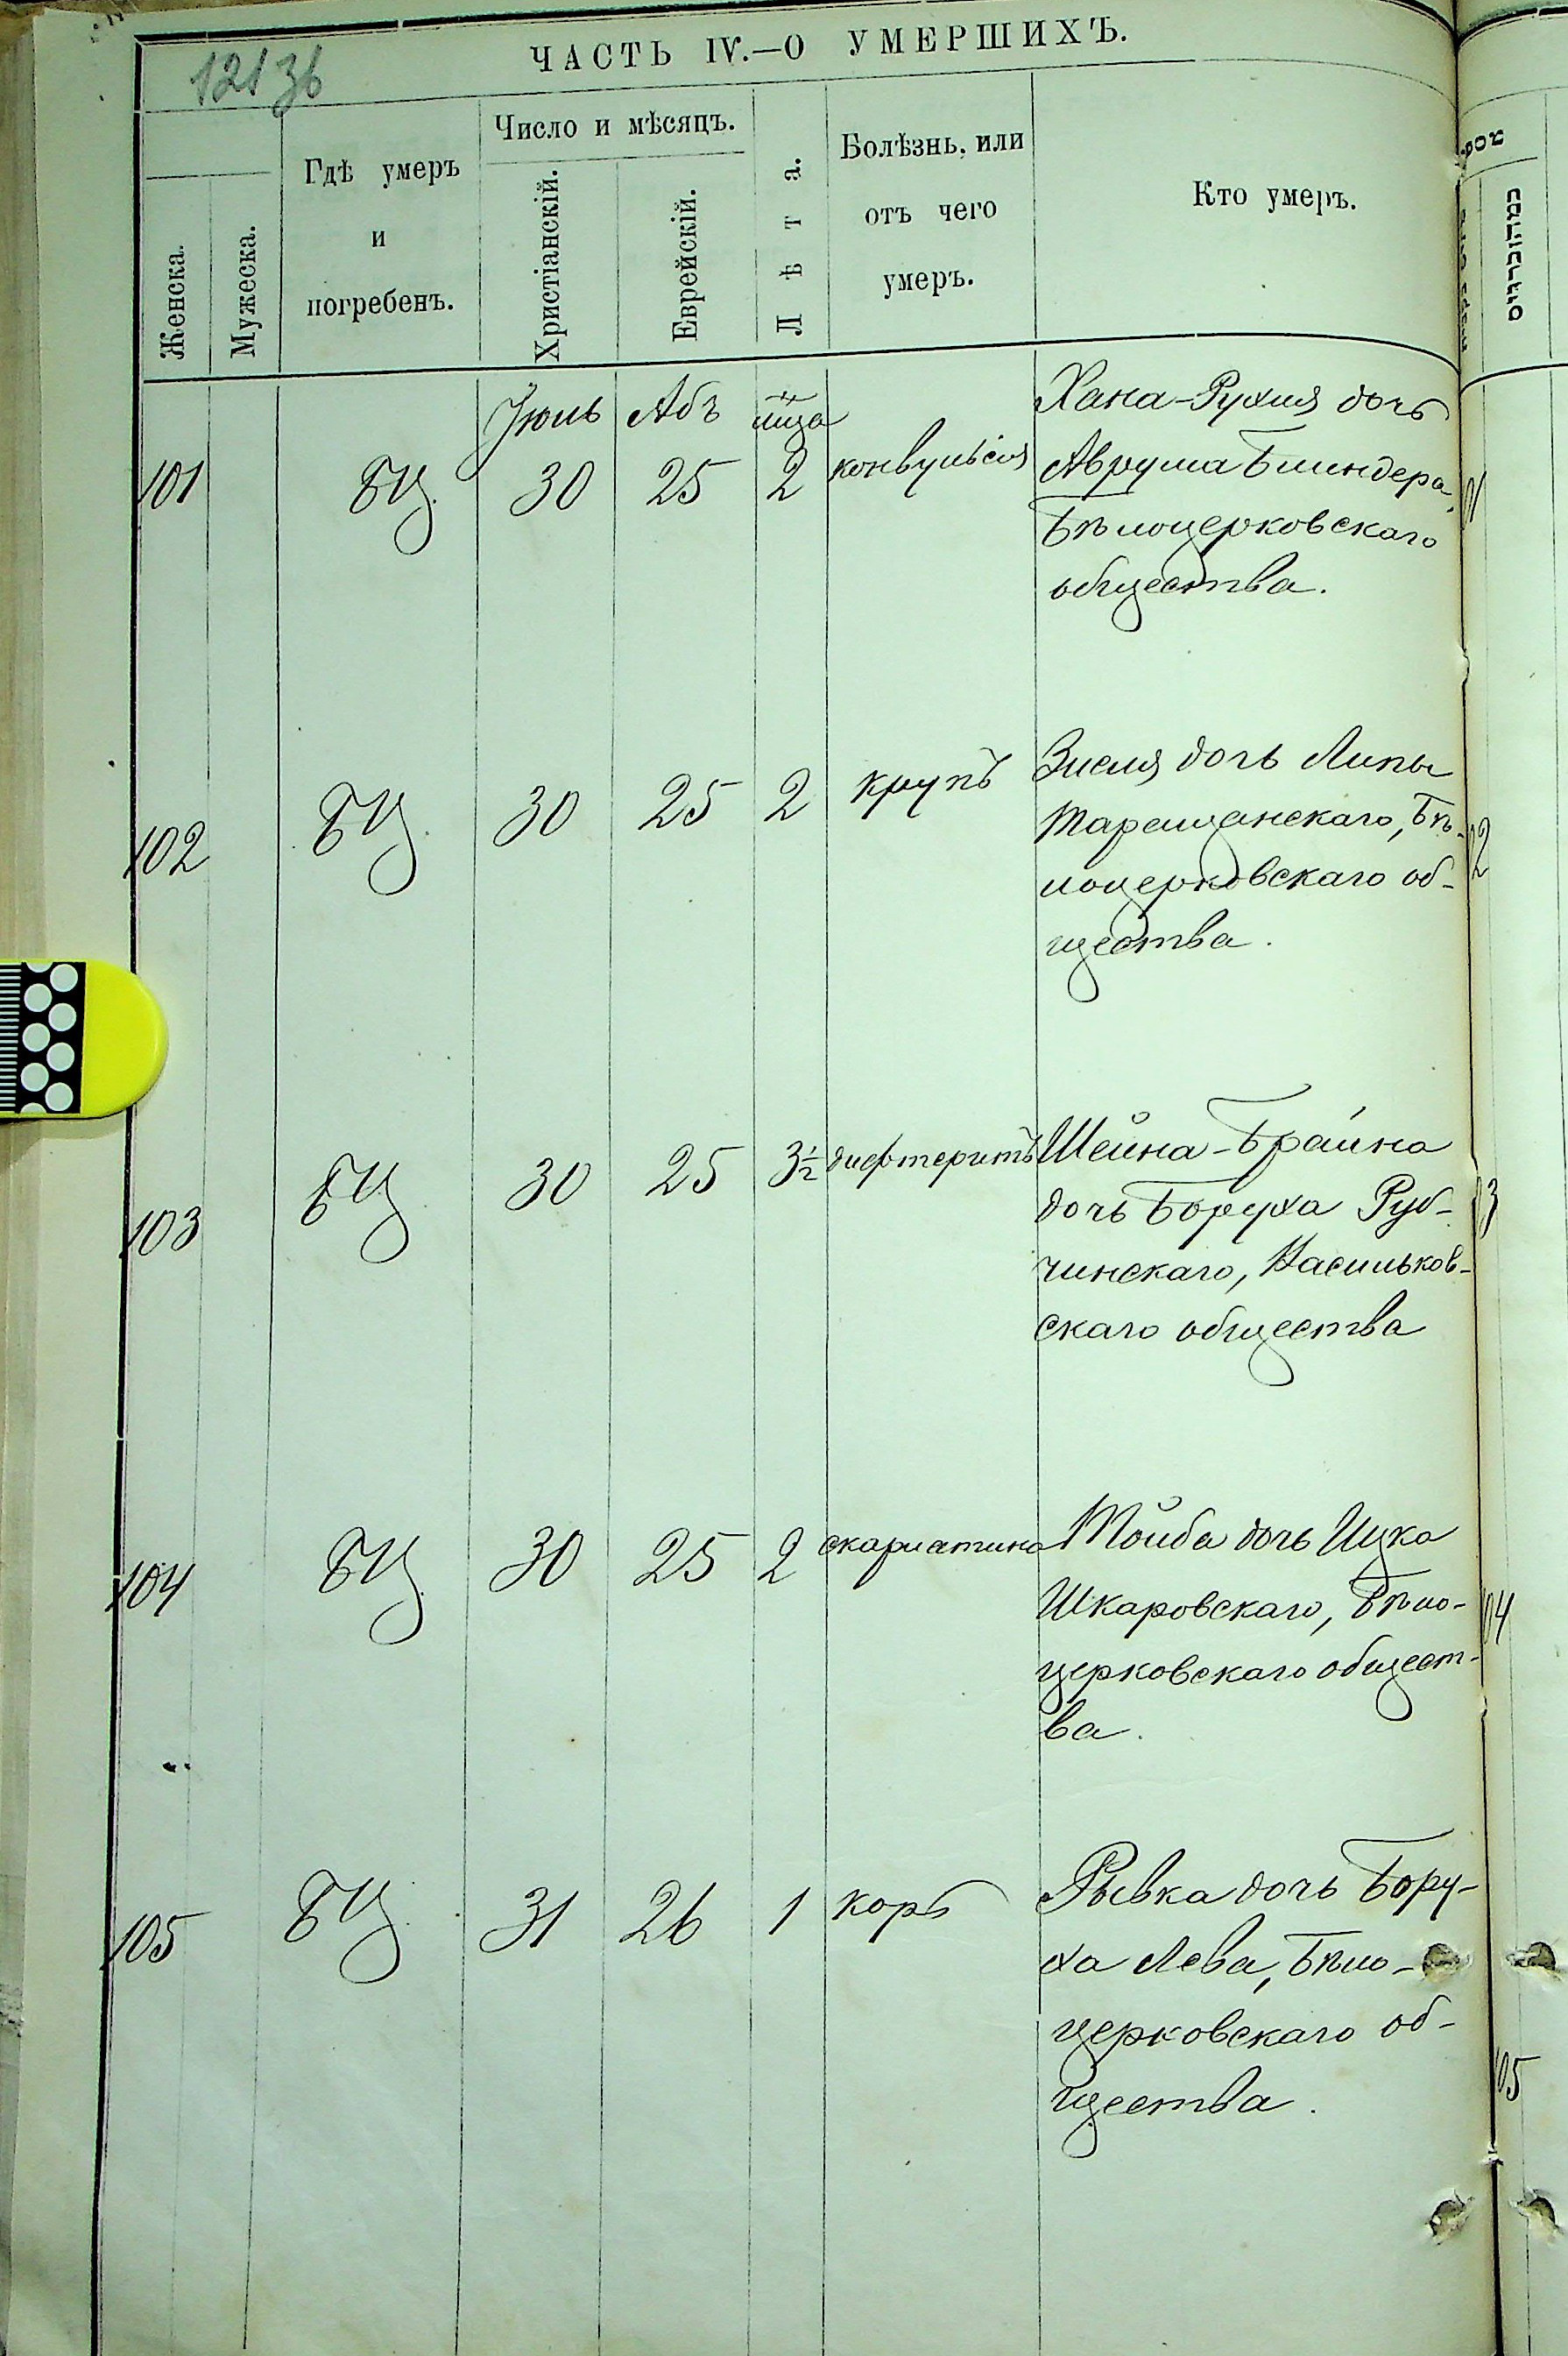 ЧАСТЬ IV.—О УМЕРШИХЪ.
Женска.
Мужеска.
Гдѣ умеръ
и
погребенъ.
Число и мѣсяцъ.
Христіанскій.
Еврейскій.
Лѣта.
Болѣзнь, или
отъ чего
умеръ.
Кто умеръ.
Іюль Абъ
101 БЦ. 30 25 2 конвульсія
Хана-Рухля дочь
Аврума Блиндера,
Бѣлоцерковскаго
общества.
102 БЦ. 30 25 2 крупъ
Зисля дочь Липы
Таращанскаго, Бѣ-
лоцерковскаго об-
щества.
103 БЦ 30 25 3½ дифтеритъ
Шейна-Брайна
дочь Боруха Руб-
чинскаго, Васильков-
скаго общества
104 БЦ. 30 25 2 скарлатина
Тойба дочь Ицка
Шкаровскаго, Бѣло-
церковскаго общест-
ва.
105 БЦ. 31 26 1 корь
Рывка дочь Бору-
ха Лева, Бѣло-
церковскаго об-
щества.